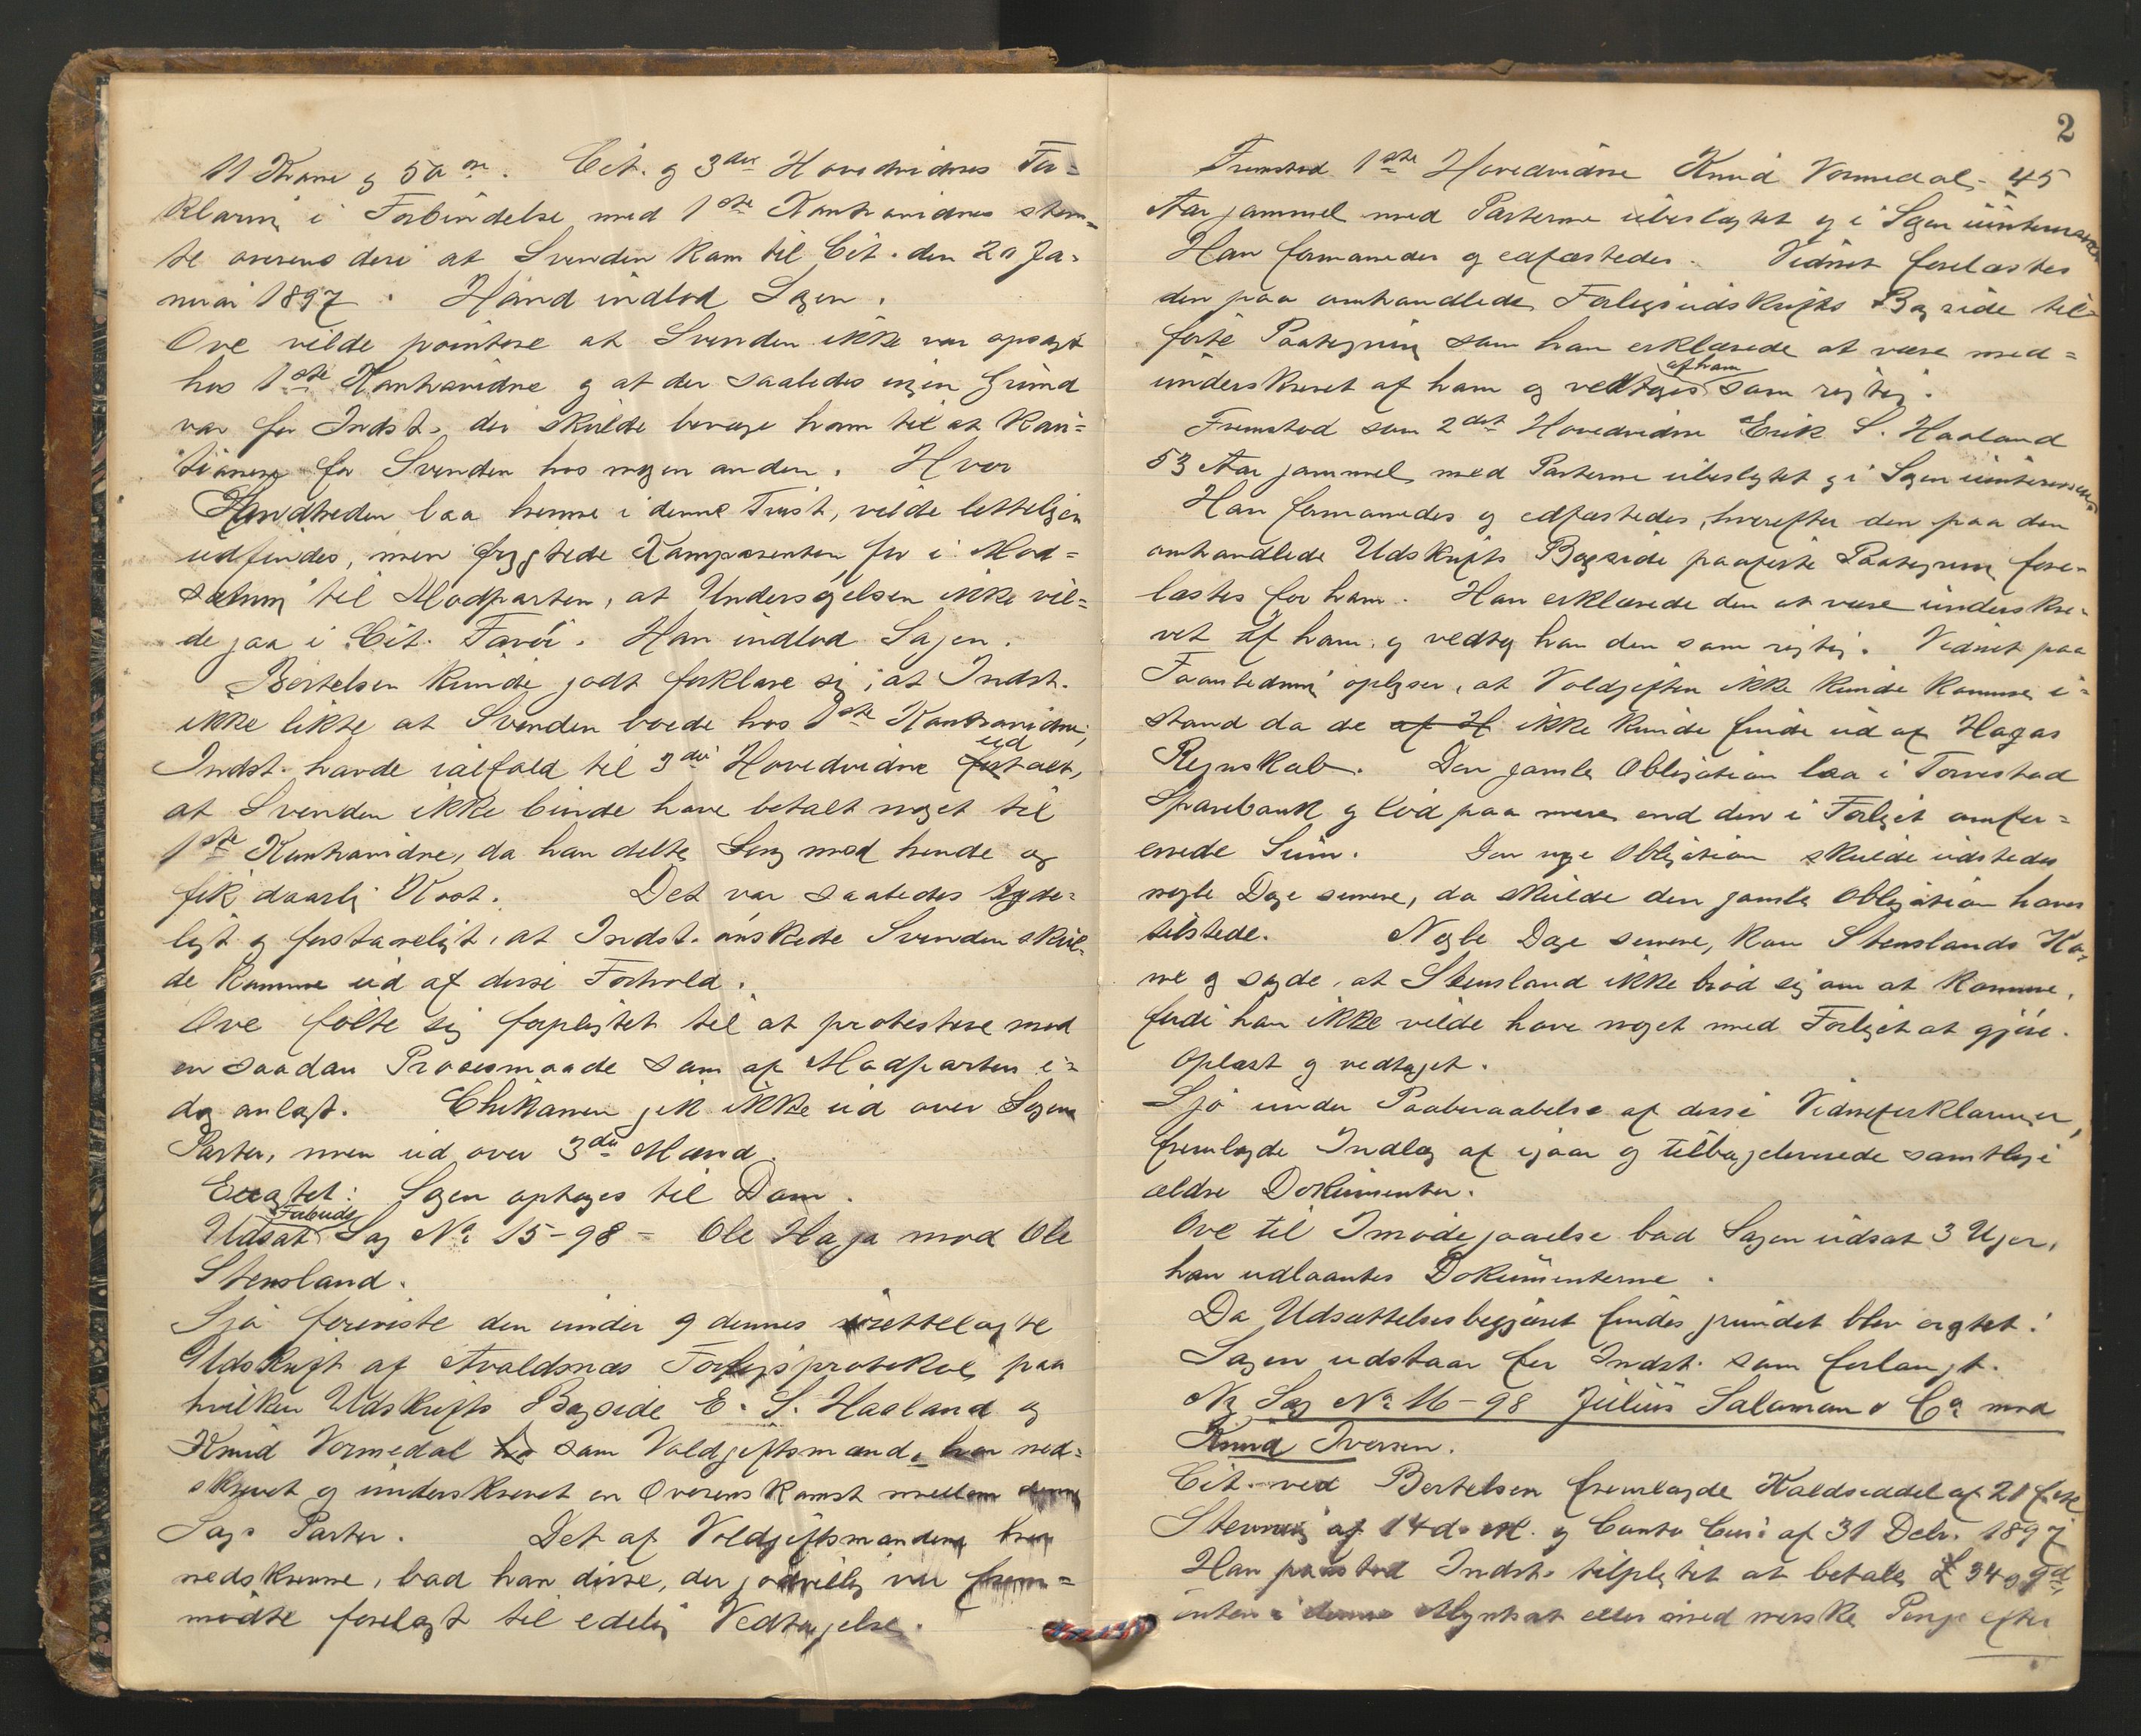 11 Krone og 50 øre. Cit. og 3die Hovedvidnes For-
klaring i Forbindelse med 1ste Kontravidnes stem-
te overens deri at Svenden kom til Cit. den 20 Ja-
nuar 1897. Hand indlod Sagen.
Ove vilde pointere at Svenden ikke var opsagt
hos 1ste Kontravidne og at der saaledes ingen Grund
var for Indst. der skulde bevæge ham til at Kau-
tionere for Svenden hos nogen anden. Hvor
Hundheden laa henne i denne Tvist, vilde letteligen
udfindes, men frygtede Komparenten for i Mod-
sætning til Modparten, at Undersøgelsen ikke vil-
de gaa i Cit. Favør. Han indlod Sagen.
Bertelsen kunde godt forklare sig, at Indst.
ikke likte at Svenden boede hos 1ste Kontravidne,
Indst. havde ialfald til 3die Hovedvidne udtalt,
at Svenden ikke burde have betalt noget til
1ste Kontravidne, da han delte Seng med hende og
fik daarlig Kost. Det var saaledes tyde-
ligt og forstaaeligt, at Indst. ønskede Svenden skul-
de komme ud af disse Forhold.
Ove følte sig forpligtet til at protestere mod
en saadan Procesmaade som af Modparten i-
dag anlagt. Chikanen gik ikke ud over Sagens
Parter, men ud over 3die Mand.
Eragtet: Sagen optages til Dom.
Udsat Forbuds Sag No 15-98 - Ole Haga mod Ole
Stensland.
Sjø foreviste den under 9 dennes irettelagte
Udskrift af Avaldsnæs Forligsprotokol, paa
hvilken Udskrifts Bagside E. S. Haaland og
Knud Vormedal som Voldgiftsmænd, har ned-
skrevet og underskrevet en Overenskomst mellem denne
Sags Parter. Det af Voldgiftsmændene
nedskrevne, bad han disse, der godvillig var frem-
mødte forelagt til edelig Vedtagelse.
2
Fremstod 1ste Hovedvidne Knud Vormedal, 45
Aar gammel med Parterne ubeslægtet og i Sagen uinteresseret
Han formanedes og edfæstedes. Vidnet forelæstes
den paa omhandlede Forligsudskrifts Bagside til-
førte Paategning som han erklærede at være med-
underskrevet af ham og vedtoges af ham som rigtig.
Fremstod som 2det Hovedvidne Erik S. Haaland
53 Aar gammel, med Parterne ubeslægtet og i Sagen uinteresseret
Han formanedes og edfæstedes, hvorefter den paa den
omhandlede Udskrifts Bagside paaførte Paategning fore-
læstes for ham. Han erklærede den at være underskre-
vet af ham, og vedtog han den som rigtig. Vidnet paa
Foranledning oplyser, at Voldgiften ikke kunde komme i-
stand da de af H ikke kunde finde ud af Hagas
Regnskab. Den gamle Obligation laa i Torvestad
Sparebank og lød paa mere end den i Forliget omfor-
enede Sum. Den nye Obligation skulde udstedes
nogle Dage senere, da skulde den gamle Obligation haves
tilstede. Nogle Dage senere, kom Stenslands Ko-
ne og sagde, at Stensland ikke brød sig om at komme,
fordi han ikke vilde have noget med Forliget at gjøre.
Oplæst og vedtaget.
Sjø under Paaberaabelse af disse Vidneforklaringer,
fremlagde Indlæg af igaar og tilbageleverede samtlige
ældre Dokumenter.
Ove til Imødegaaelse bad Sagen udsat 3 Uger,
han udlaantes Dokumenterne.
Da Udsættelsesbegjæret findes grundet blev eragtet:
Sagen udstaar for Indst. som forlangt.
Ny Sag No 16-98 Julius Salomon & Co mod
Knud Iversen.
Cit. ved Bertelsen fremlagde Kaldseddel af 21 f.
Stevning af 14 d. M. og Conto Cur. af 31 Dcbr. 1897
Han paastod Indst. tilpligtet at betale £ 34
enten i denne Myntsort eller med norske Penge efter